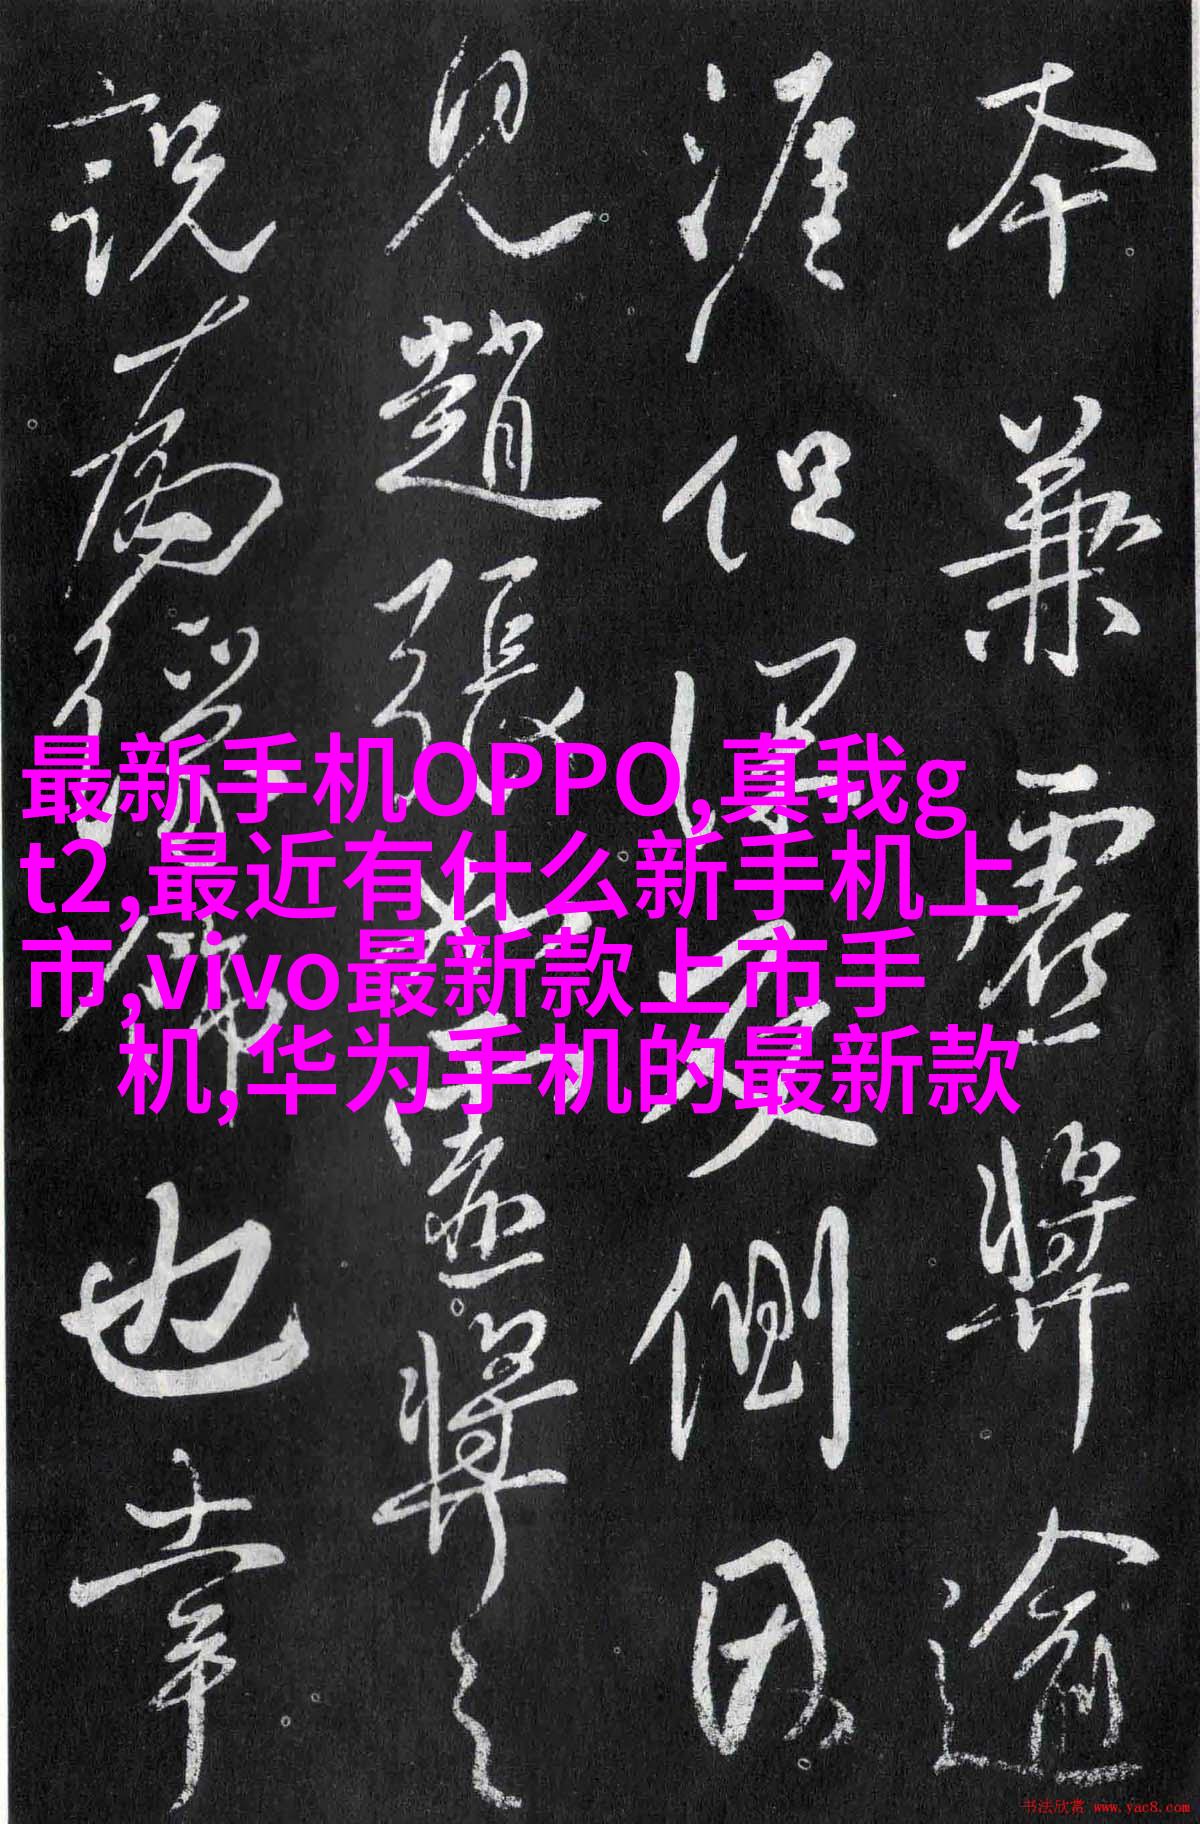 本兼虚将逾
涯但得史侧因
見趙張虛將之
説為僧也章
最新手机OPPO,真我g
t2,最近有什么新手机上
市,vivo最新款上市手
机,华为手机的最新款
书法欣赏 www.yac8.com